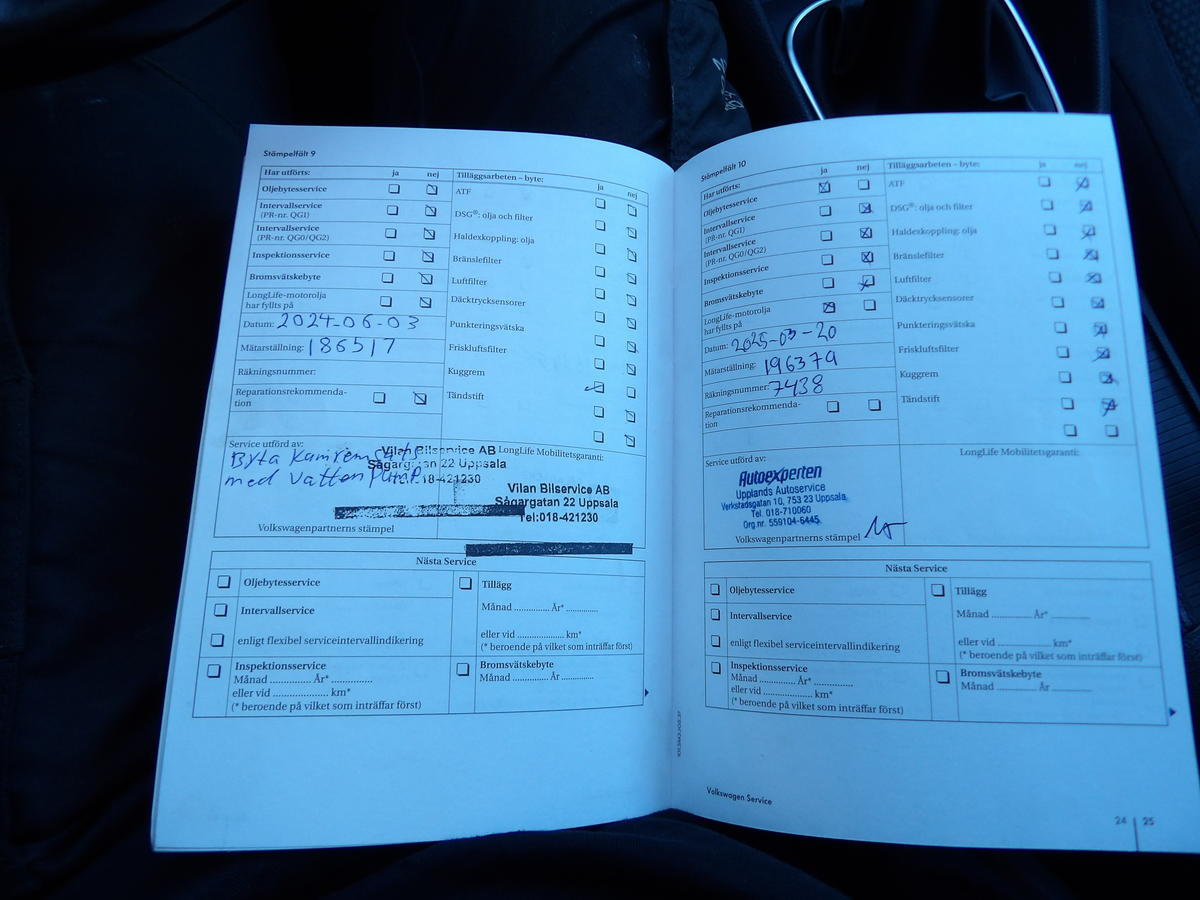 Stämpelfält 9
Har utförts: ja nej
Oljebytesservice
Intervallservice
(PR-nr. QG1)
Intervallservice
(PR-nr. QG0/QG2)
Inspektionsservice
Bromsvätskebyte
LongLife-motorolja
har fyllts på
Datum: 2024-06-03
Mätarställning: 186517
Räkningsnummer:
Reparationsrekommenda-
tion
Tilläggsarbeten – byte: ja nej
ATF
DSG®: olja och filter
Haldexkoppling: olja
Bränslefilter
Luftfilter
Däcktrycksensorer
Punkteringsvätska
Friskluftsfilter
Kuggrem
Tändstift
Service utförd av:
Byta kamrem
med Vatten pump
Vilan Bilservice AB
Sågargatan 22 Uppsala
18-421230
Volkswagenpartnerns stämpel
LongLife Mobilitetsgaranti:
Vilan Bilservice AB
Sågargatan 22 Uppsala
Tel:018-421230
Nästa Service
Oljebytesservice
Intervallservice
enligt flexibel serviceintervallindikering
Inspektionsservice
Månad ............ År* ............
eller vid .................... km*
(* beroende på vilket som inträffar först)
Tillägg
Månad ............ År* ............
eller vid .................... km*
(* beroende på vilket som inträffar först)
Bromsvätskebyte
Månad ............ År ............
Stämpelfält 10
Har utförts: ja nej
Oljebytesservice
Intervallservice
(PR-nr. QG1)
Intervallservice
(PR-nr. QG0/QG2)
Inspektionsservice
Bromsvätskebyte
LongLife-motorolja
har fyllts på
Datum: 2025-03-20
Mätarställning: 196379
Räkningsnummer: 7438
Reparationsrekommenda-
tion
Tilläggsarbeten – byte: ja nej
ATF
DSG®: olja och filter
Haldexkoppling: olja
Bränslefilter
Luftfilter
Däcktrycksensorer
Punkteringsvätska
Friskluftsfilter
Kuggrem
Tändstift
Service utförd av:
Autoexperten
Upplands Autoservice
Verkstadsgatan 10, 753 23 Uppsala
Tel. 018-710060
Org.nr. 559104-6445
Volkswagenpartnerns stämpel
LongLife Mobilitetsgaranti:
Nästa Service
Oljebytesservice
Intervallservice
enligt flexibel serviceintervallindikering
Inspektionsservice
Månad ............ År* ............
eller vid .................... km*
(* beroende på vilket som inträffar först)
Tillägg
Månad ............ År* ............
eller vid .................... km*
(* beroende på vilket som inträffar först)
Bromsvätskebyte
Månad ............ År ............
Volkswagen Service
24 | 25